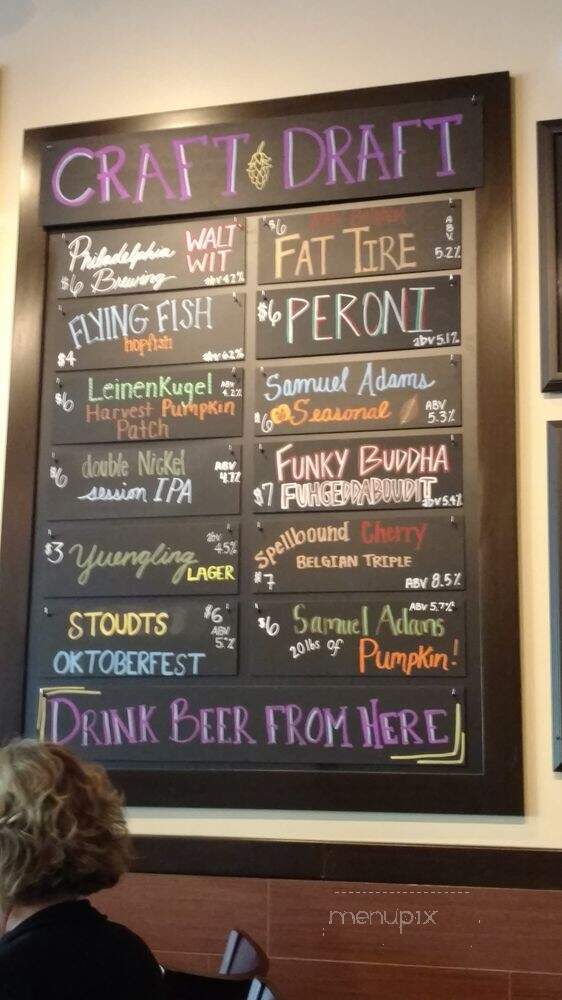 CRAFT DRAFT
Philadelphia WALT
$6 Brewing WIT
abv 4.2%
$6
FAT TIRE
ABV
5.2%
FLYING FISH
hopfish
$4 abv 6.2%
$6 PERONI
abv 5.1%
LeinenKugel ABV 4.2%
$6 Harvest Pumpkin
Patch
Samuel Adams
$6 Seasonal ABV
5.3%
double Nickel ABV
$6 session IPA 4.7%
FUNKY BUDDHA
$7 FUHGEDDABOUDIT
abv 5.4%
$3 Yuengling abv 4.5%
LAGER
Spellbound Cherry
BELGIAN TRIPLE
$7 ABV 8.5%
STOUDTS $6
ABV
OKTOBERFEST
ABV 5.7%
$6 Samuel Adams
20lbs of Pumpkin!
DRINK BEER FROM HERE
menupix